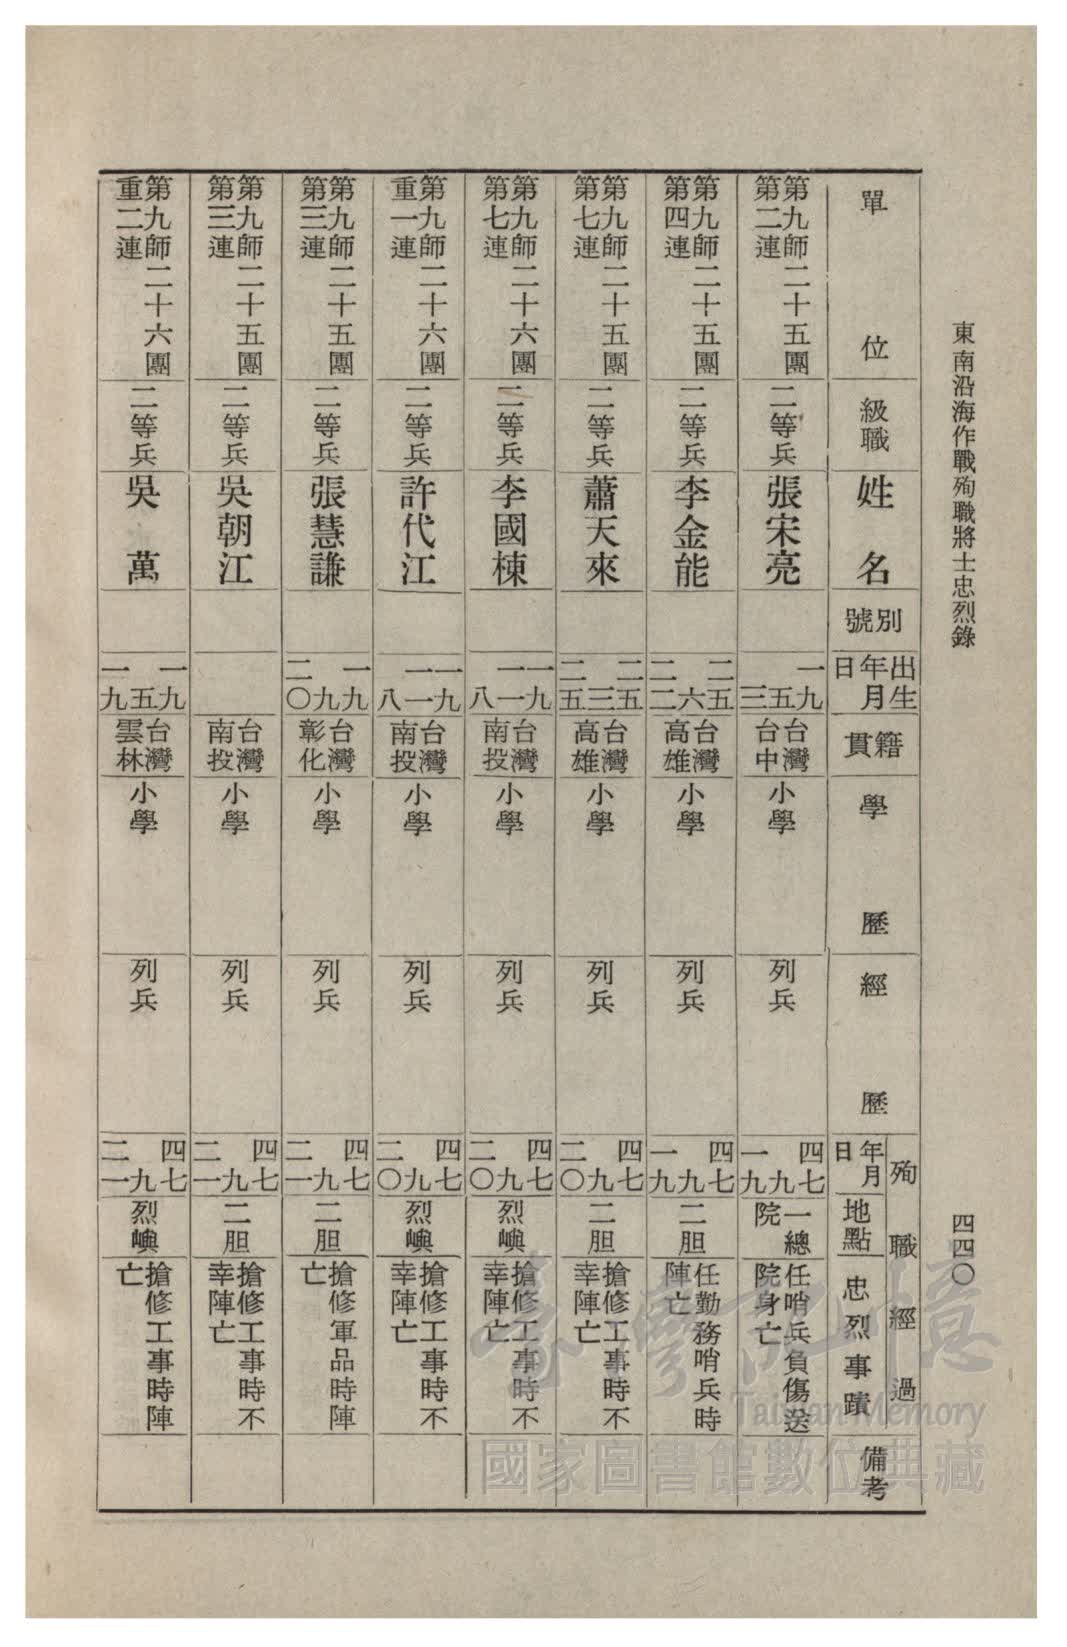 東南沿海作戰殉職將士忠烈錄
四四〇
單位
級職
姓名
別號
出生年月日
籍貫
學歷
經歷
殉職經過
年月日
地點
忠烈事蹟
備考
第九師二十五團
第二連
二等兵
張宋亮
一九 五 三
台灣
台中
小學
列兵
四七 九 一九
一總
院
任哨兵負傷送
院身亡
第九師二十五團
第四連
二等兵
李金能
二五 六 二二
台灣
高雄
小學
列兵
四七 九 一九
二胆
任勤務哨兵時
陣亡
第九師二十五團
第七連
二等兵
蕭天來
二五 三 二五
台灣
高雄
小學
列兵
四七 九 二〇
二胆
搶修工事時不
幸陣亡
第九師二十六團
第七連
二等兵
李國棟
一九 一 一八
台灣
南投
小學
列兵
四七 九 二〇
烈嶼
搶修工事時不
幸陣亡
第九師二十六團
重一連
二等兵
許代江
一九 一 一八
台灣
南投
小學
列兵
四七 九 二〇
烈嶼
搶修工事時不
幸陣亡
第九師二十五團
第三連
二等兵
張慧謙
一九 九 二〇
台灣
彰化
小學
列兵
四七 九 二一
二胆
搶修軍品時陣
亡
第九師二十五團
第三連
二等兵
吳朝江
台灣
南投
小學
列兵
四七 九 二一
二胆
搶修工事時不
幸陣亡
第九師二十六團
重二連
二等兵
吳萬
一九 五 一九
台灣
雲林
小學
列兵
四七 九 二一
烈嶼
搶修工事時陣
亡
臺灣記憶
Taiwan Memory
國家圖書館數位典藏